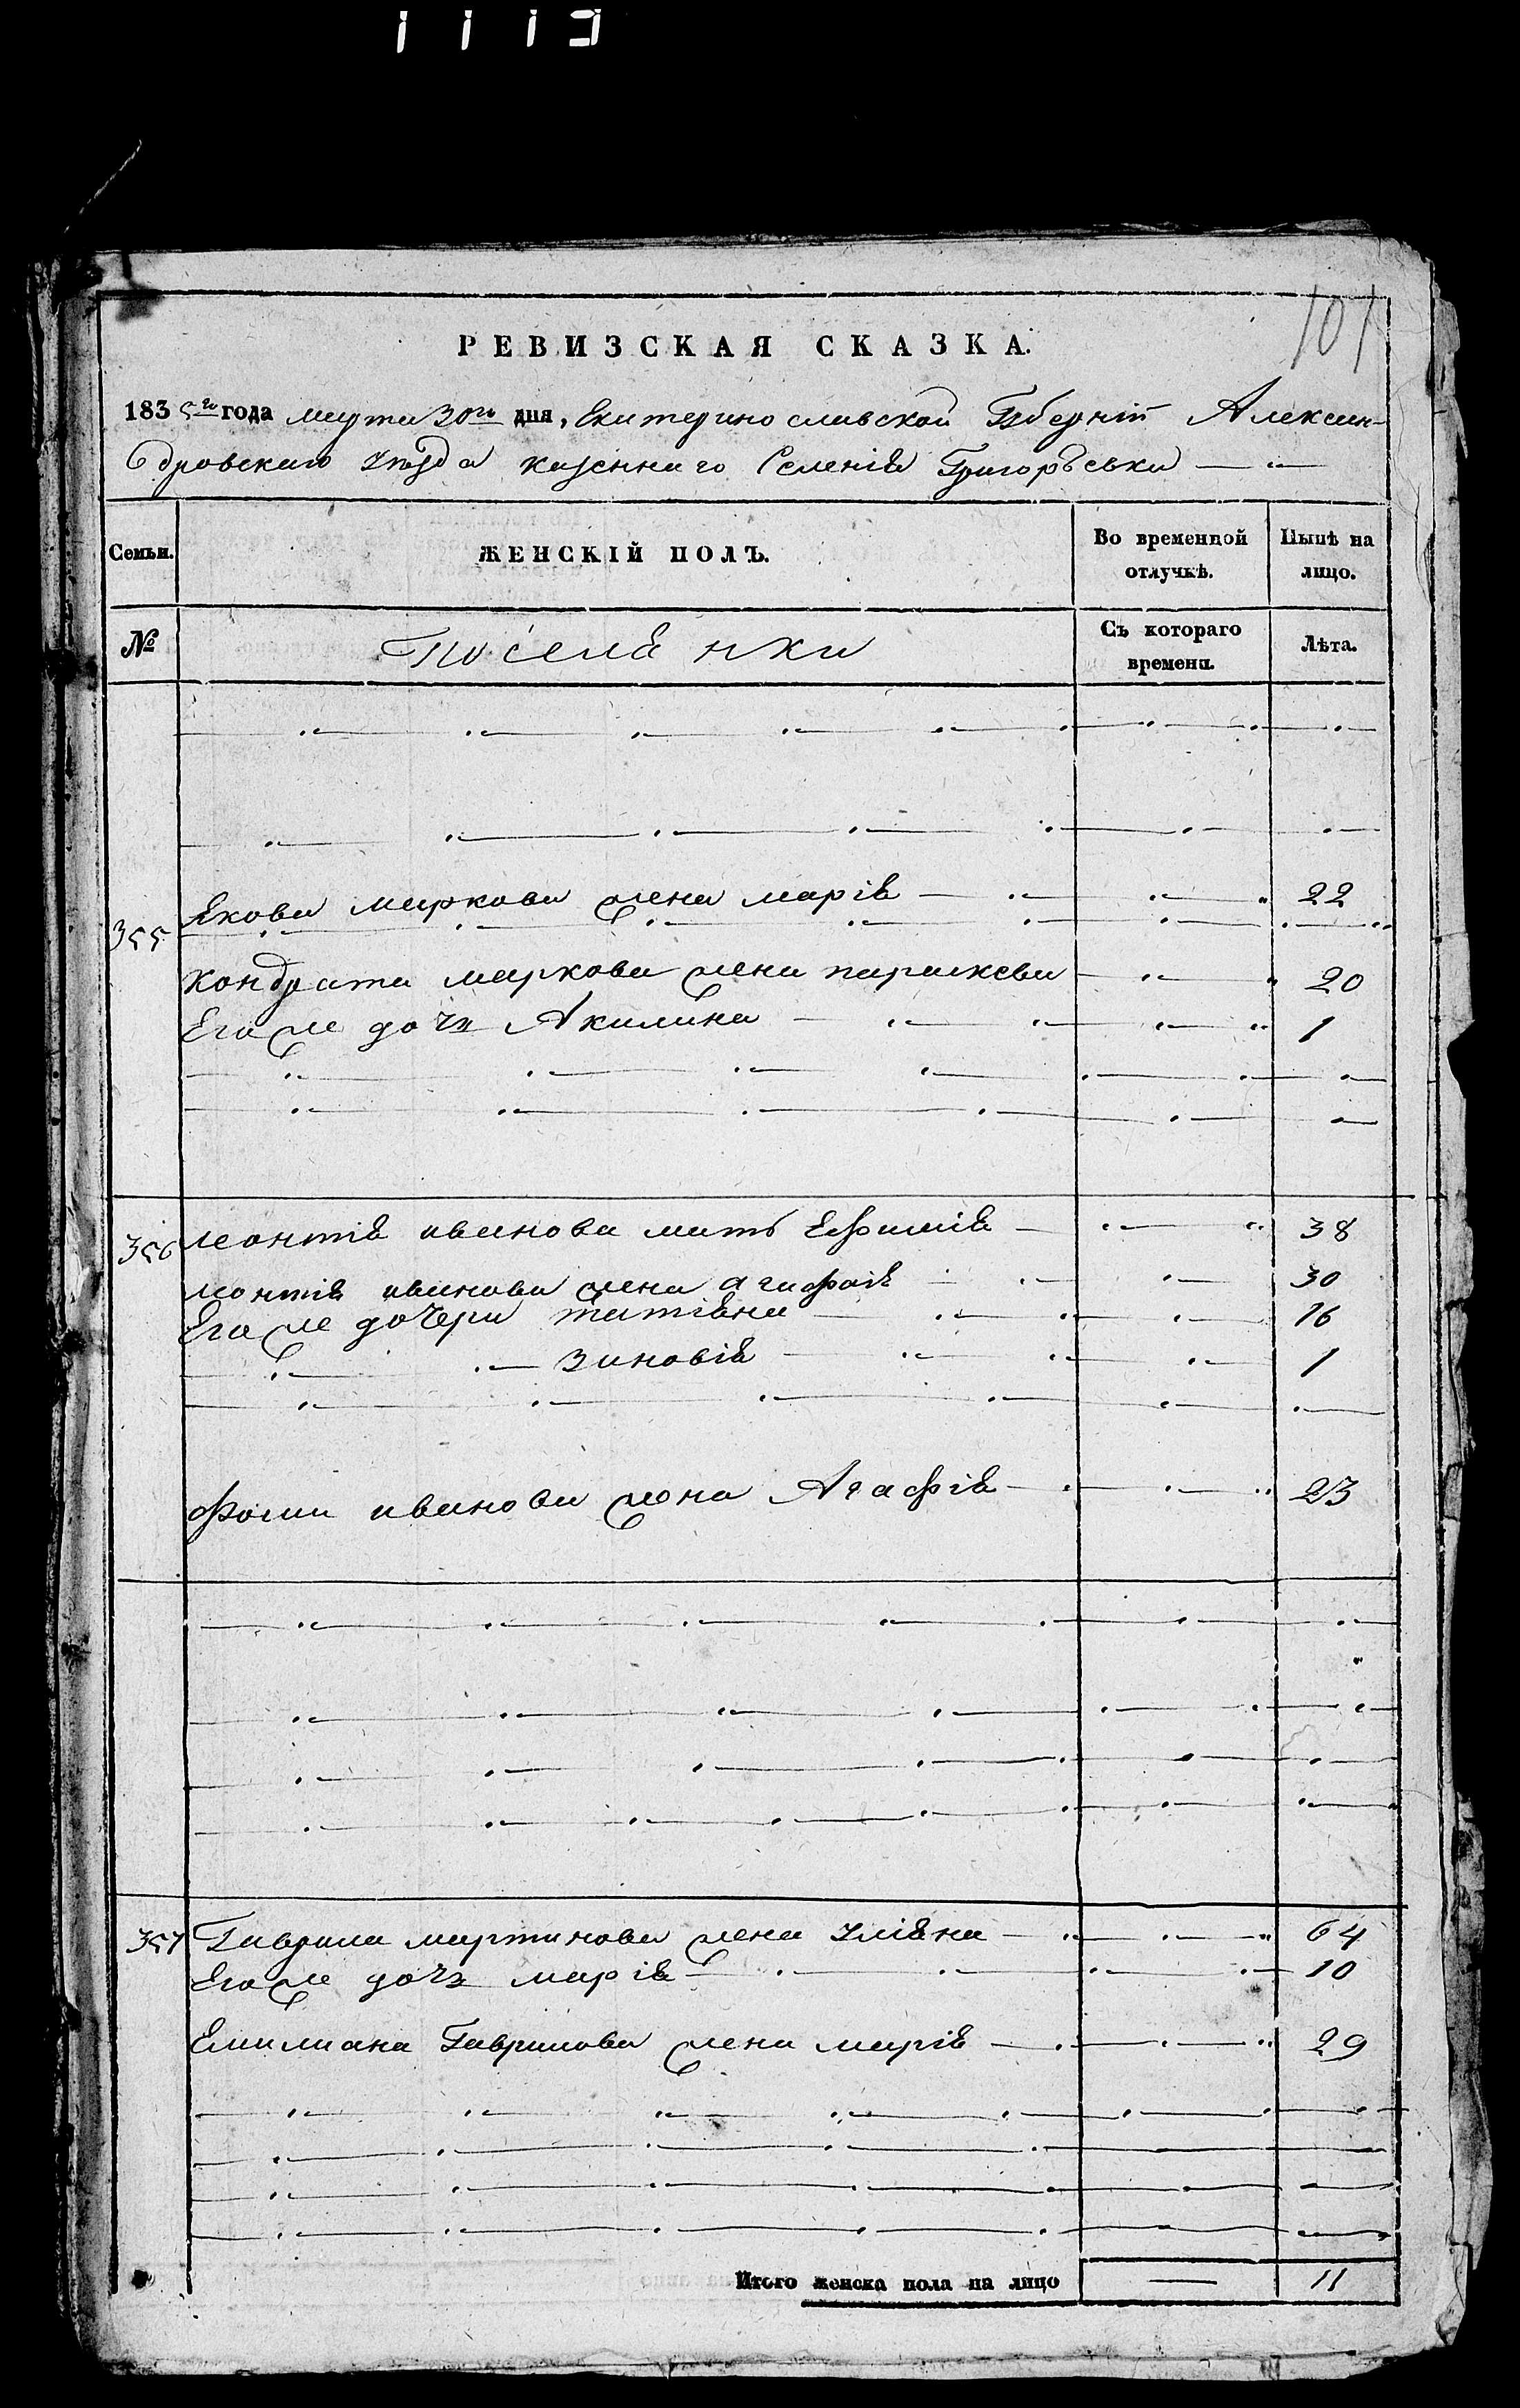 1113
101
РЕВИЗСКАЯ СКАЗКА.
1835го года марта 30го дня, Екатеринославской Губерніи Алексан-
дровскаго уѣзда казеннаго Селенія Григорьевки
Семьи. ЖЕНСКІЙ ПОЛЪ. Во временной отлучкѣ. Нынѣ на лицо.
№ Поселянки Съ котораго времени. Лѣта.
Якова маркова жена марія 22
355
Кондрата маркова жена параскева 20
Его же дочь Акилина 1
356 леонтія иванова мать Ефимія 38
леонтія иванова жена агафія 30
Его же дочери татіяна 16
зиновія 1
Фомы иванова жена Агафія 23
357 Гаврила мартинова жена уліяна 64
Его же дочь марія 10
Емилиана Гаврилова жена марія 29
Итого женска пола на лицо — 11